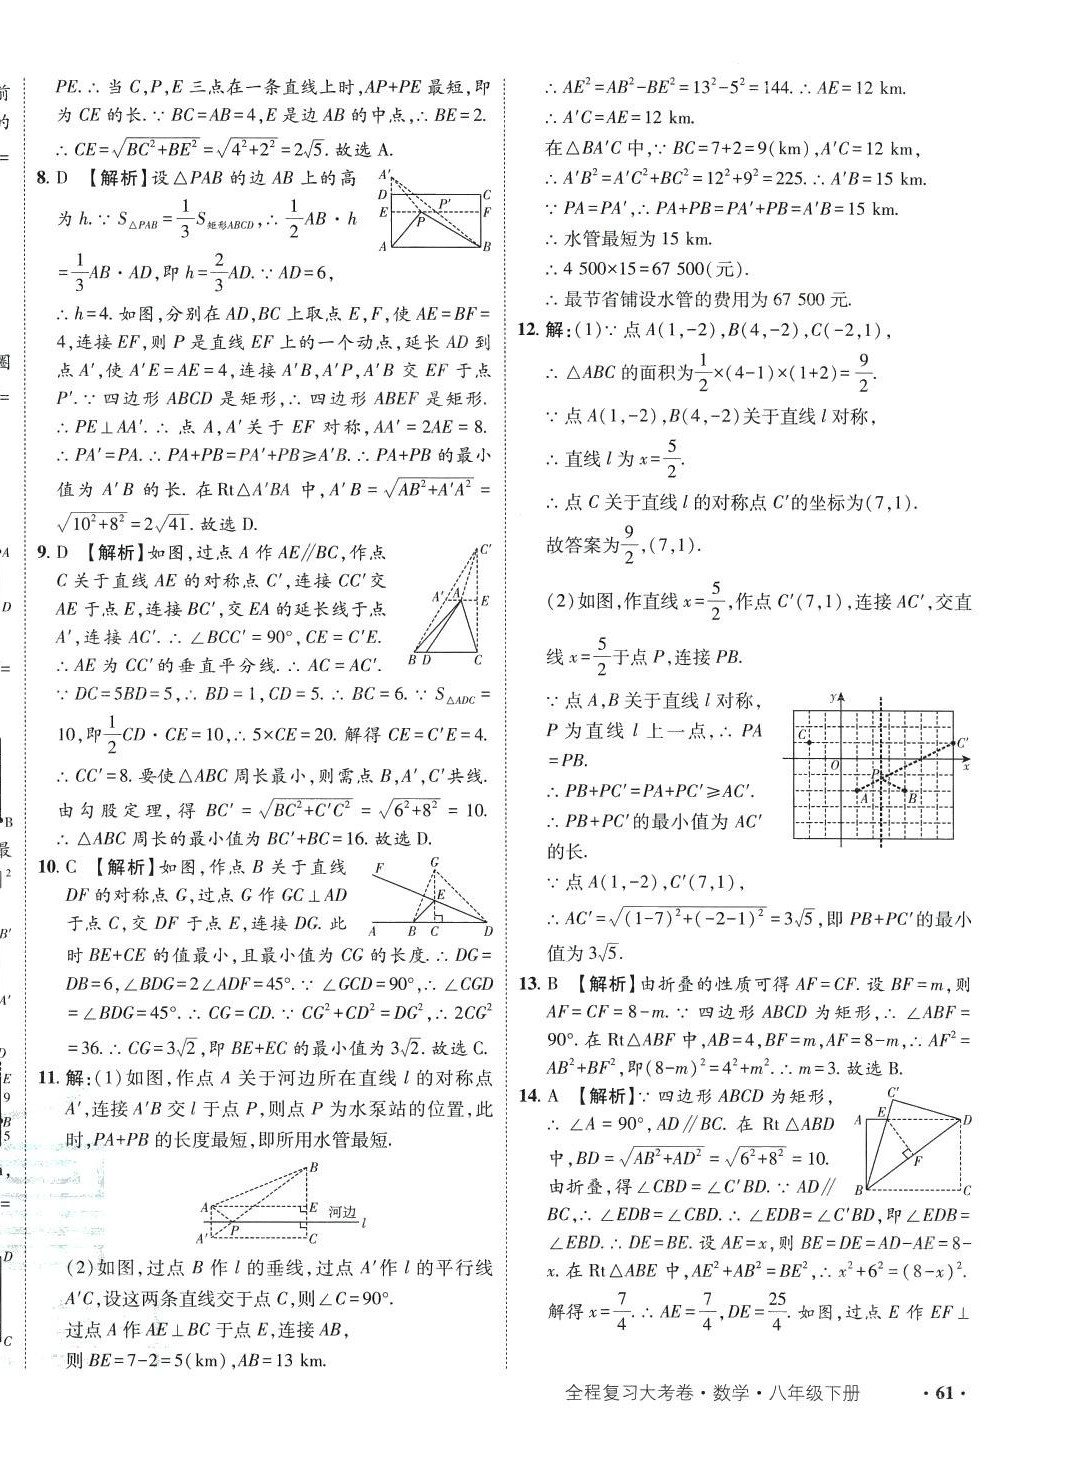 PE.∴当C,P,E三点在一条直线上时,AP+PE最短,即
为CE的长.∵BC=AB=4,E是边AB的中点,∴BE=2.
∴CE=√(BC²+BE²)=√(4²+2²)=2√5.故选A.
8. D 【解析】设△PAB的边AB上的高
为h.∵S△PAB=1/3S矩形ABCD,∴1/2AB·h
=1/3AB·AD,即h=2/3AD.∵AD=6,
∴h=4.如图,分别在AD,BC上取点E,F,使AE=BF=
4,连接EF,则P是直线EF上的一个动点,延长AD到
点A′,使A′E=AE=4,连接A′B,A′P,A′B交EF于点
P′.∵四边形ABCD是矩形,∴四边形ABEF是矩形.
∴PE⊥AA′.∴点A,A′关于EF对称,AA′=2AE=8.
∴PA′=PA.∴PA+PB=PA′+PB≥A′B.∴PA+PB的最小
值为A′B的长.在Rt△A′BA中,A′B=√(AB²+A′A²)=
√(10²+8²)=2√41.故选D.
9. D 【解析】如图,过点A作AE∥BC,作点
C关于直线AE的对称点C′,连接CC′交
AE于点E,连接BC′,交EA的延长线于点
A′,连接AC′.∴∠BCC′=90°,CE=C′E.
∴AE为CC′的垂直平分线.∴AC=AC′.
∵DC=5BD=5,∴BD=1,CD=5.∴BC=6.∵S△ADC=
10,即1/2CD·CE=10,∴5×CE=20.解得CE=C′E=4.
∴CC′=8.要使△ABC周长最小,则需点B,A′,C′共线.
由勾股定理,得BC′=√(BC²+C′C²)=√(6²+8²)=10.
∴△ABC周长的最小值为BC′+BC=16.故选D.
10. C 【解析】如图,作点B关于直线
DF的对称点G,过点G作GC⊥AD
于点C,交DF于点E,连接DG.此
时BE+CE的值最小,且最小值为CG的长度.∴DG=
DB=6,∠BDG=2∠ADF=45°.∵∠GCD=90°,∴∠CGD
=∠BDG=45°.∴CG=CD.∵CG²+CD²=DG²,∴2CG²
=36.∴CG=3√2,即BE+EC的最小值为3√2.故选C.
11. 解:(1)如图,作点A关于河边所在直线l的对称点
A′,连接A′B交l于点P,则点P为水泵站的位置,此
时,PA+PB的长度最短,即所用水管最短.
B
A E 河边
P l
A′ C
(2)如图,过点B作l的垂线,过点A′作l的平行线
A′C,设这两条直线交于点C,则∠C=90°.
过点A作AE⊥BC于点E,连接AB,
则BE=7-2=5(km),AB=13 km.
∴AE²=AB²-BE²=13²-5²=144.∴AE=12 km.
∴A′C=AE=12 km.
在△BA′C中,∵BC=7+2=9(km),A′C=12 km,
∴A′B²=A′C²+BC²=12²+9²=225.∴A′B=15 km.
∵PA=PA′,∴PA+PB=PA′+PB=A′B=15 km.
∴水管最短为15 km.
∴4 500×15=67 500(元).
∴最节省铺设水管的费用为67 500元.
12. 解:(1)∵点A(1,-2),B(4,-2),C(-2,1),
∴△ABC的面积为1/2×(4-1)×(1+2)=9/2.
∵点A(1,-2),B(4,-2)关于直线l对称,
∴直线l为x=5/2.
∴点C关于直线l的对称点C′的坐标为(7,1).
故答案为9/2,(7,1).
(2)如图,作直线x=5/2,作点C′(7,1),连接AC′,交直
线x=5/2于点P,连接PB.
∵点A,B关于直线l对称,
P为直线l上一点,∴PA
=PB.
∴PB+PC′=PA+PC′≥AC′.
∴PB+PC′的最小值为AC′
的长.
∵点A(1,-2),C′(7,1),
∴AC′=√((1-7)²+(-2-1)²)=3√5,即PB+PC′的最小
值为3√5.
13. B 【解析】由折叠的性质可得AF=CF.设BF=m,则
AF=CF=8-m.∵四边形ABCD为矩形,∴∠ABF=
90°.在Rt△ABF中,AB=4,BF=m,AF=8-m,∴AF²=
AB²+BF²,即(8-m)²=4²+m².∴m=3.故选B.
14. A 【解析】∵四边形ABCD为矩形,
∴∠A=90°,AD∥BC.在Rt△ABD
中,BD=√(AB²+AD²)=√(6²+8²)=10.
由折叠,得∠CBD=∠C′BD.∵AD∥
BC,∴∠EDB=∠CBD.∴∠EDB=∠C′BD,即∠EDB=
∠EBD.∴DE=BE.设AE=x,则BE=DE=AD-AE=8-
x.在Rt△ABE中,AE²+AB²=BE²,∴x²+6²=(8-x)².
解得x=7/4.∴AE=7/4,DE=25/4.如图,过点E作EF⊥
全程复习大考卷·数学·八年级下册 ·61·